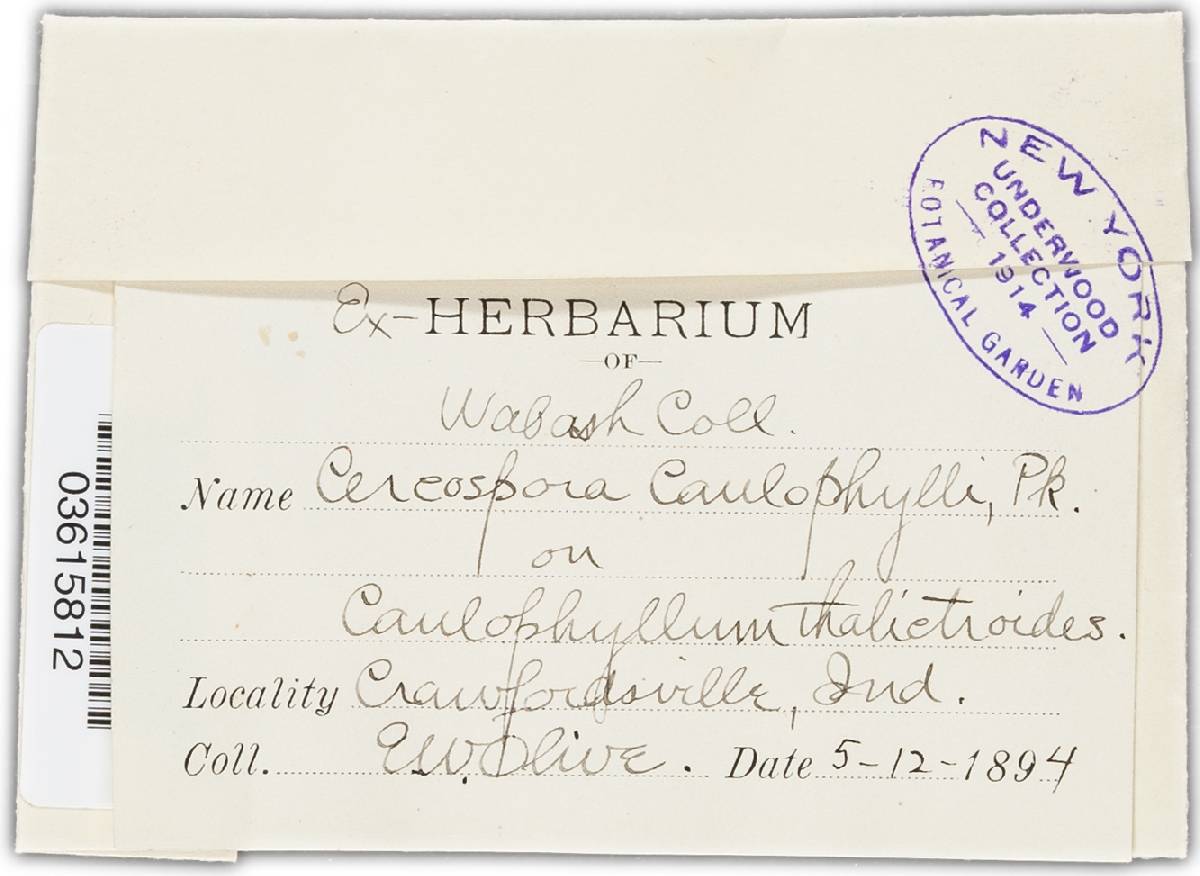 NEW YORK
UNDERWOOD
COLLECTION
— 1914 —
BOTANICAL GARDEN
Ex-HERBARIUM
—OF—
Wabash Coll.
Name Cercospora Caulophylli, Pk.
on
Caulophyllum thalictroides.
Locality Crawfordsville, Ind.
Coll. E.W. Olive. Date 5-12-1894
03615812